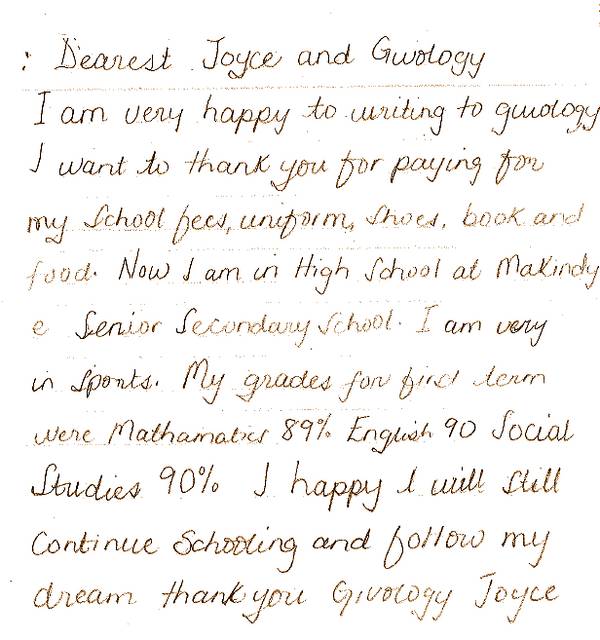 : Dearest Joyce and Givology
I am very happy to writing to givology
I want to thank you for paying for
my School fees, uniform, shoes, book and
food. Now I am in High School at Makindy
e Senior Secondary School. I am very
in Sports. My grades for first term
were Mathamatics 89% English 90 Social
Studies 90% I happy I will still
Continue Schooling and follow my
dream thank you Givology Joyce